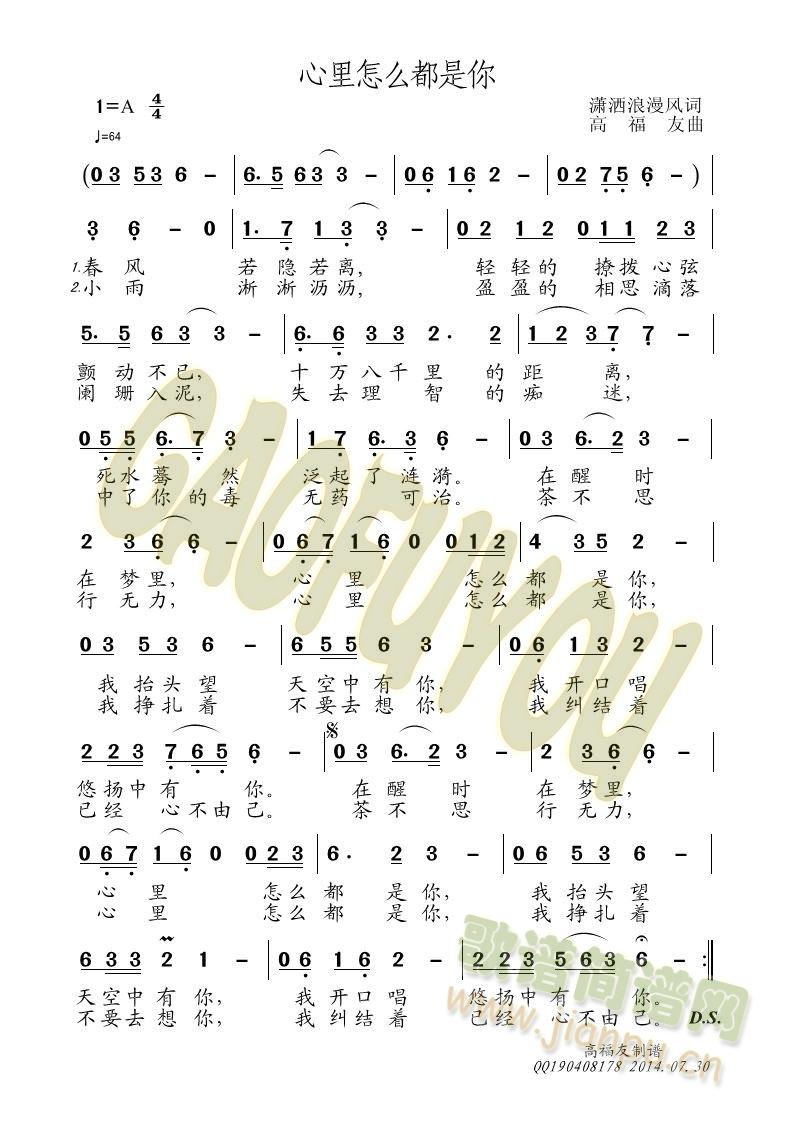 心里怎么都是你
1=A 4/4
潇洒浪漫风词
♩=64
高福友曲
(0 3 5 3 6 - | 6. 5 6 3 3 - | 0 6 1 6 2 - | 0 2 7 5 6 - ) |
3 6 - 0 | 1. 7 1 3 3 - | 0 2 1 2 0 1 1 2 3 |
1.春风 若隐若离, 轻轻的 撩拨心弦
2.小雨 淅淅沥沥, 盈盈的 相思滴落
5. 5 6 3 3 - | 6. 6 3 3 2. 2 | 1 2 3 7 7 - |
颤动不已, 十万八千里 的距离,
阑珊入泥, 失去理智的痴迷,
0 5 5 6. 7 3 - | 1 7 6. 3 6 - | 0 3 6. 2 3 - |
死水蓦然 泛起了涟漪。 在醒时
中了你的毒 无药可治。 茶不思
2 3 6 6 - | 0 6 7 1 6 0 0 1 2 | 4 3 5 2 - |
在梦里, 心里 怎么都是你,
行无力, 心里 怎么都是你,
0 3 5 3 6 - | 6 5 5 6 3 - | 0 6 1 3 2 - |
我抬头望 天空中有你, 我开口唱
我挣扎着 不要去想你, 我纠结着
2 2 3 7 6 5 6 - | 0 3 6. 2 3 - | 2 3 6 6 - |
悠扬中有你。 在醒时 在梦里,
已经心不由己。 茶不思 行无力,
0 6 7 1 6 0 0 2 3 | 6. 2 3 - | 0 6 5 3 6 - |
心里 怎么都是你, 我抬头望
心里 怎么都是你, 我挣扎着
6 3 3 2 1 - | 0 6 1 6 2 - | 2 2 3 5 6 3 6 - :||
天空中有你, 我开口唱 悠扬中有你。
不要去想你, 我纠结着 已经心不由己。 D.S.
高福友制谱
QQ190408178 2014.07.30
GAOFUYOU
歌谱简谱网
www.jianpu.cn